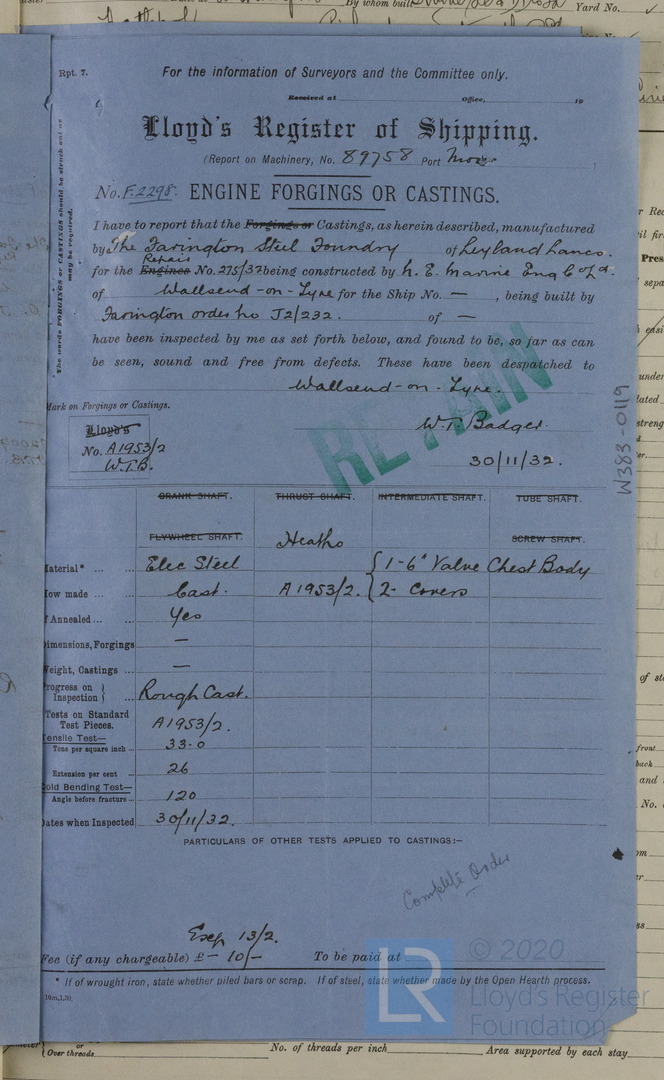 By whom built
Yard No.
Rpt. 7.
For the information of Surveyors and the Committee only.
Received at Office, 19
Lloyd's Register of Shipping.
(Report on Machinery, No. 89758 Port
No. F.2298. ENGINE FORGINGS OR CASTINGS.
The words FORGINGS or CASTINGS should be struck out as may be required.
I have to report that the Forgings or Castings, as herein described, manufactured
by The Farington Steel Foundry of Leyland Lancs.
Repairs
for the Engines No. 275/32 being constructed by N. E. Marine Eng Co Ld.
of Wallsend-on-Tyne for the Ship No. — , being built by
Farington order no J2/232. of —
have been inspected by me as set forth below, and found to be, so far as can
be seen, sound and free from defects. These have been despatched to
Wallsend-on-Tyne.
RETAIN
Mark on Forgings or Castings.
W.T. Badger.
Lloyd's
No. A1953/2
W.T.B.
30/11/32.
W383-0119
CRANK SHAFT. THRUST SHAFT. INTERMEDIATE SHAFT. TUBE SHAFT.
FLYWHEEL SHAFT. Heaths SCREW SHAFT.
Material* ... ... Elec Steel { 1-6" Valve Chest Body
How made ... ... Cast. A1953/2. { 2- Covers
If Annealed ... ... Yes
Dimensions, Forgings —
Weight, Castings ... —
Progress on } Inspection } ... Rough Cast.
Tests on Standard Test Pieces. A1953/2.
Tensile Test—
Tons per square inch ... 33.0
Extension per cent ... 26
Cold Bending Test—
Angle before fracture ... 120
Dates when Inspected 30/11/32.
PARTICULARS OF OTHER TESTS APPLIED TO CASTINGS:—
Complete Order
Exp 13/2.
Fee (if any chargeable) £ — 10/— To be paid at
* If of wrought iron, state whether piled bars or scrap. If of steel, state whether made by the Open Hearth process.
10m,1,30.
LR
© 2020
Lloyd's Register
Foundation
or
Over threads.
No. of threads per inch
Area supported by each stay